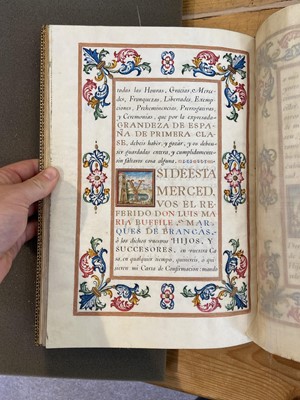 todas las Honras, Gracias, Merce-
des, Franquezas, Libertades, Exemp-
ciones, Preheminencias, Prerrogativas,
y Ceremonias, que por la expresada
GRANDEZA DE ESPA-
ÑA DE PRIMERA CLA-
SE, debeis haber, y gozar, y os deben
ser guardadas entera, y cumplidamente
sin faltaros cosa alguna.
Y SI DE ESTA
MERCED,
VOS EL RE-
FERIDO DON LUIS MA-
RIA BUFFILE, MAR-
QUÉS DE BRANCAS,
ó los dichos vuestros HIJOS, Y
SUCCESORES, en vuestra Ca-
sa, en qualquier tiempo, quisiereis, ó qui-
sieren mi Carta de Confirmacion: mando